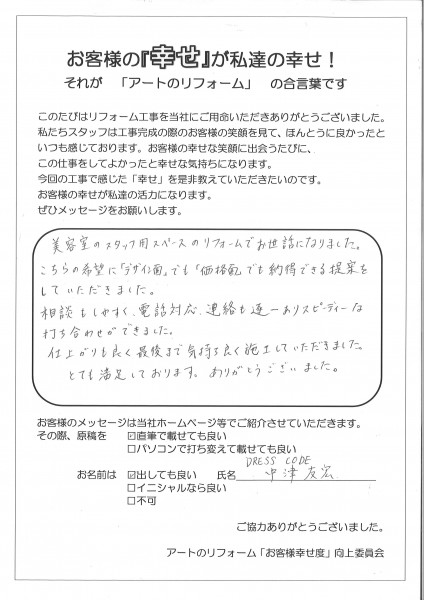 お客様の『幸せ』が私達の幸せ！
それが　「アートのリフォーム」　の合言葉です
このたびはリフォーム工事を当社にご用命いただきありがとうございました。
私たちスタッフは工事完成の際のお客様の笑顔を見て、ほんとうに良かったと
いつも感じております。お客様の幸せな笑顔に出会うたびに、
この仕事をしてよかったと幸せな気持ちになります。
今回の工事で感じた「幸せ」を是非教えていただきたいのです。
お客様の幸せが私達の活力になります。
ぜひメッセージをお願いします。
美容室のスタッフ用スペースのリフォームでお世話になりました。
こちらの希望に「デザイン面」でも「価格面」でも納得できる提案を
していただきました。
相談もしやすく、電話対応、連絡も逐一ありスピーディーな
打ち合わせができました。
仕上がりも良く最後まで気持ち良く施工していただきました。
とても満足しております。ありがとうございました。
お客様のメッセージは当社ホームページ等でご紹介させていただきます。
その際、原稿を　☑直筆で載せても良い
□パソコンで打ち変えて載せても良い
DRESS CODE
お名前は　☑出しても良い　氏名 中津 友宏
□イニシャルなら良い
□不可
ご協力ありがとうございました。
アートのリフォーム「お客様幸せ度」向上委員会